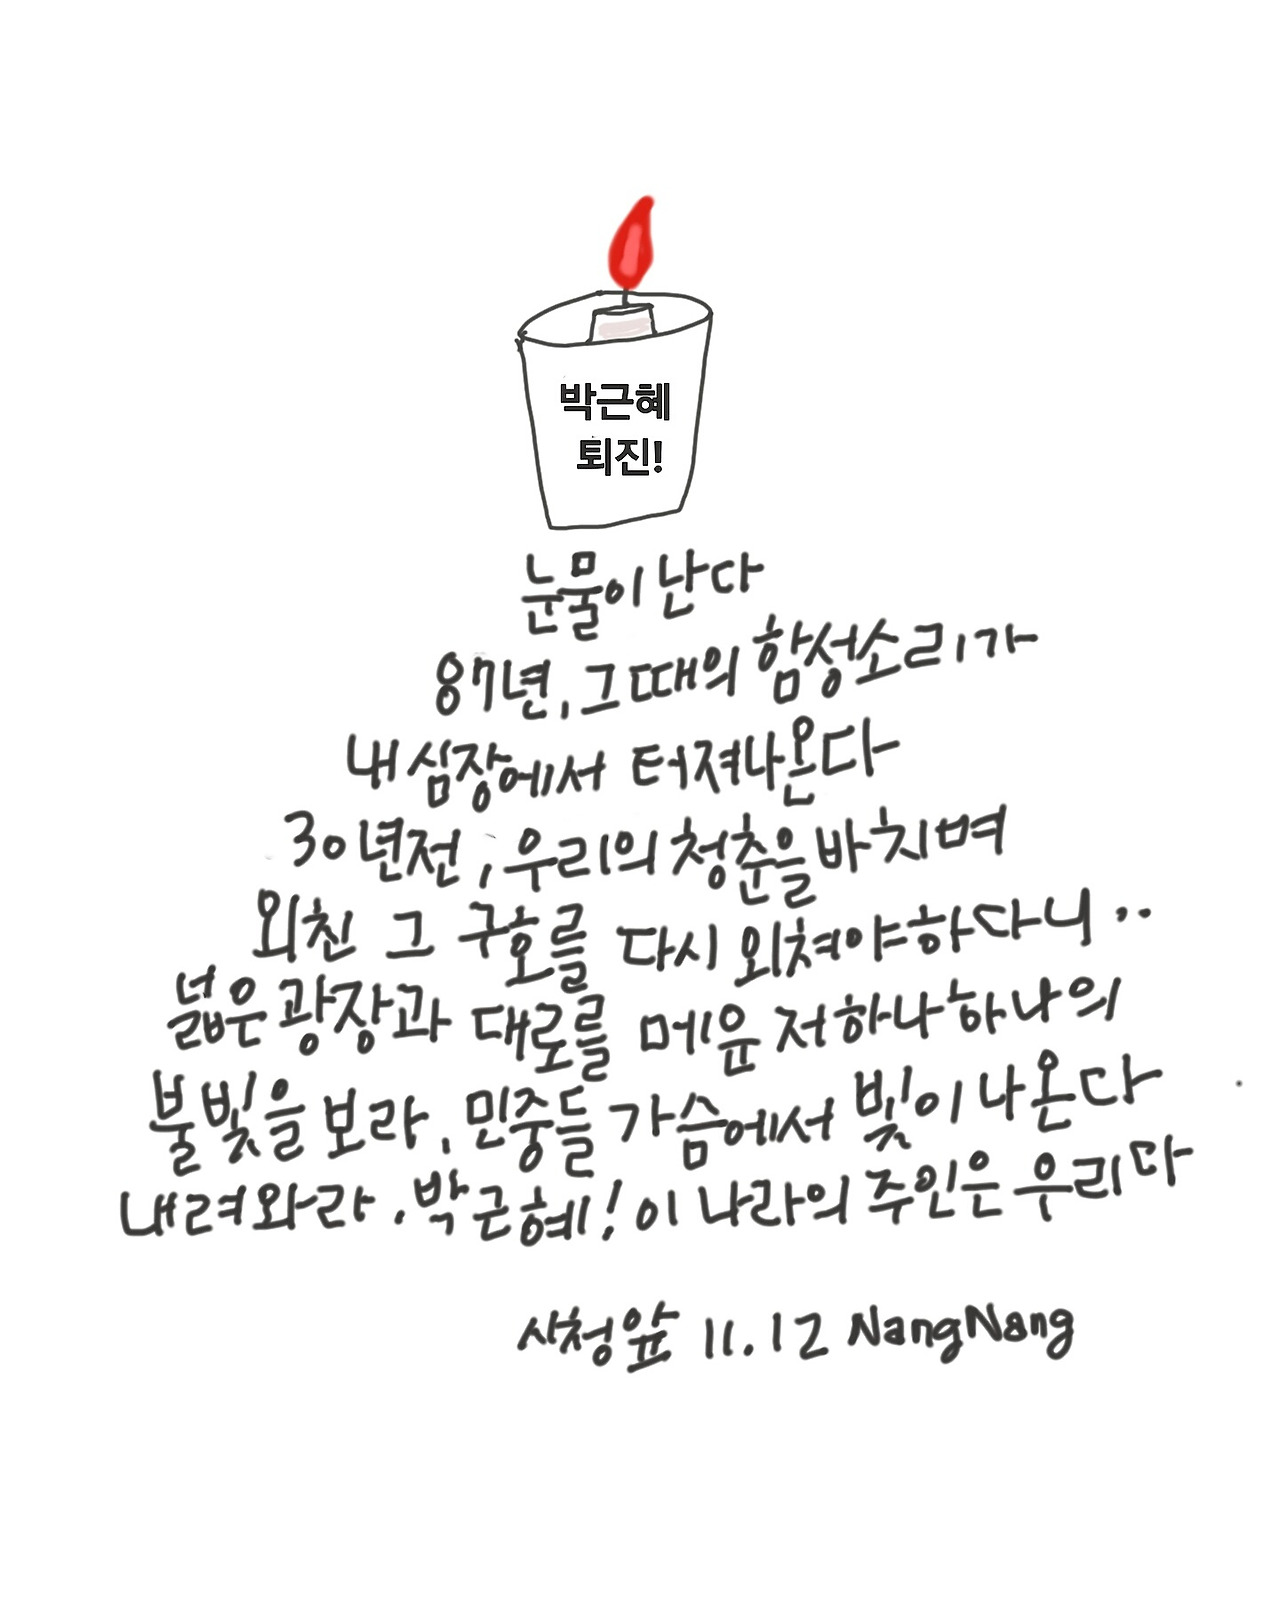 박근혜
퇴진!
눈물이 난다
87년, 그때의 함성소리가
내 심장에서 터져나온다
30년전, 우리의 청춘을 바치며
외친 그 구호를 다시 외쳐야하다니..
넓은 광장과 대로를 메운 저 하나하나의
불빛을 보라, 민중들 가슴에서 빛이 나온다
내려와라, 박근혜! 이 나라의 주인은 우리다
시청앞 11.12 NangNang